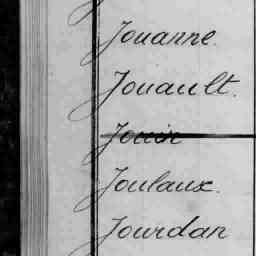 Jouanne.
Jouault.
Jouin
Joulaux.
Jourdan